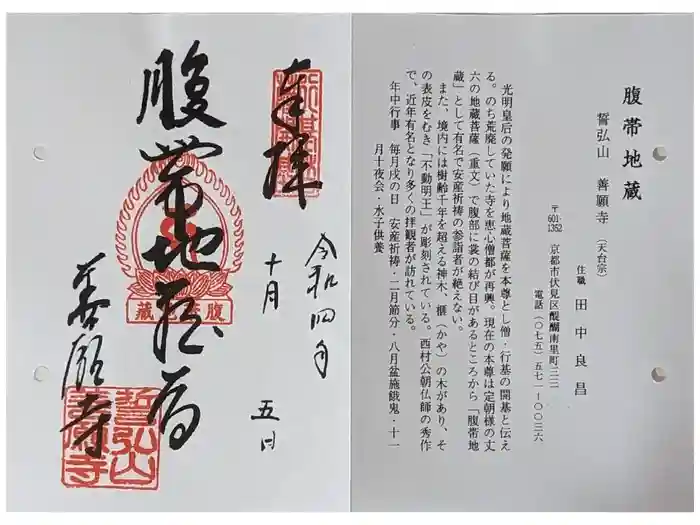 奉拝
令和四年
十月
五日
腹帯地蔵尊
善願寺
腹帯地蔵
誓弘山
善願寺
腹帯地蔵
誓弘山 善願寺 (天台宗)
住職 田中良昌
〒601-1352 京都市伏見区醍醐南里町三三
電話(〇七五)五七一-〇〇三六
光明皇后の発願により地蔵菩薩を本尊とし僧・行基の開基と伝え
る。のち荒廃していた寺を恵心僧都が再興。現在の本尊は定朝様の丈
六の地蔵菩薩(重文)で腹部に裳の結び目があるところから「腹帯地
蔵」として有名で安産祈祷の参詣者が絶えない。
また、境内には樹齢千年を超える神木、榧(かや)の木があり、そ
の表皮をむき「不動明王」が彫刻されている。西村公朝仏師の秀作
で、近年有名となり多くの拝観者が訪れている。
年中行事 毎月戌の日 安産祈祷・二月節分・八月盆施餓鬼・十一
月十夜会・水子供養